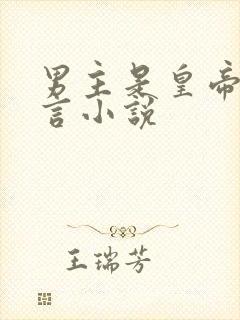 男主是皇帝
言小說
王瑞芳